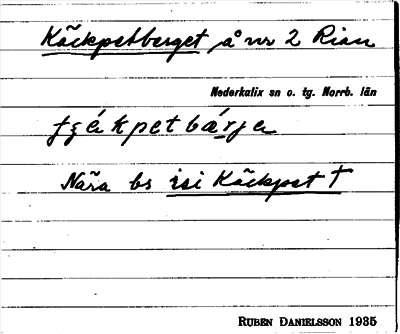 Käckpetberget å nr 2 Rian
Nederkalix sn o. tg. Norrb. län
Nära bs isi Käckpet †
RUBEN DANIELSSON 1935